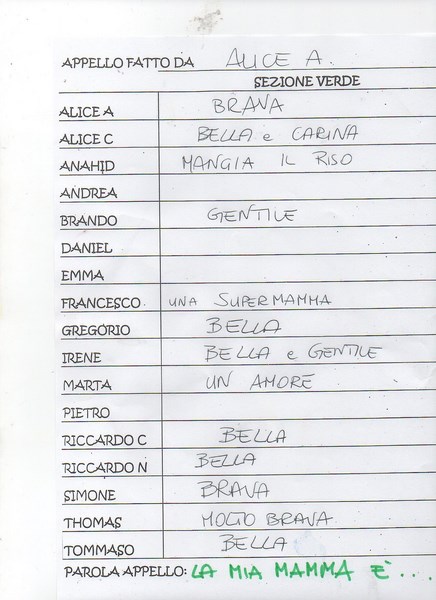 APPELLO FATTO DA ALICE A.
SEZIONE VERDE
ALICE A BRAVA
ALICE C BELLA e CARINA
ANAHID MANGIA IL RISO
ANDREA
BRANDO GENTILE
DANIEL
EMMA
FRANCESCO UNA SUPERMAMMA
GREGORIO BELLA
IRENE BELLA e GENTILE
MARTA UN AMORE
PIETRO
RICCARDO C BELLA
RICCARDO N BELLA
SIMONE BRAVA
THOMAS MOLTO BRAVA
TOMMASO BELLA
PAROLA APPELLO: LA MIA MAMMA E'...